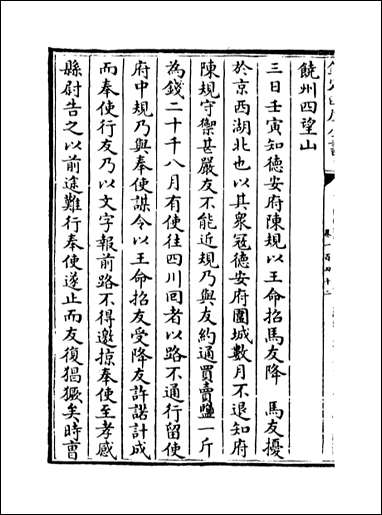 饒州四望山
三日壬寅知德安府陳規以王命招馬友降　馬友擾
於京西湖北也以其衆冦德安府圍城數月不退知府
陳規守禦甚嚴友不能近規乃與友約通買賣鹽一斤
為錢二十千八月有使往四川回者以路不通行留使
府中規乃與奉使謀令以王命招友受降友許諾計成
而奉使行友乃以文字報前路不得邀掠奉使至孝感
縣尉告之以前途難行奉使遂止而友復猖獗矣時曹
卷一百四十二